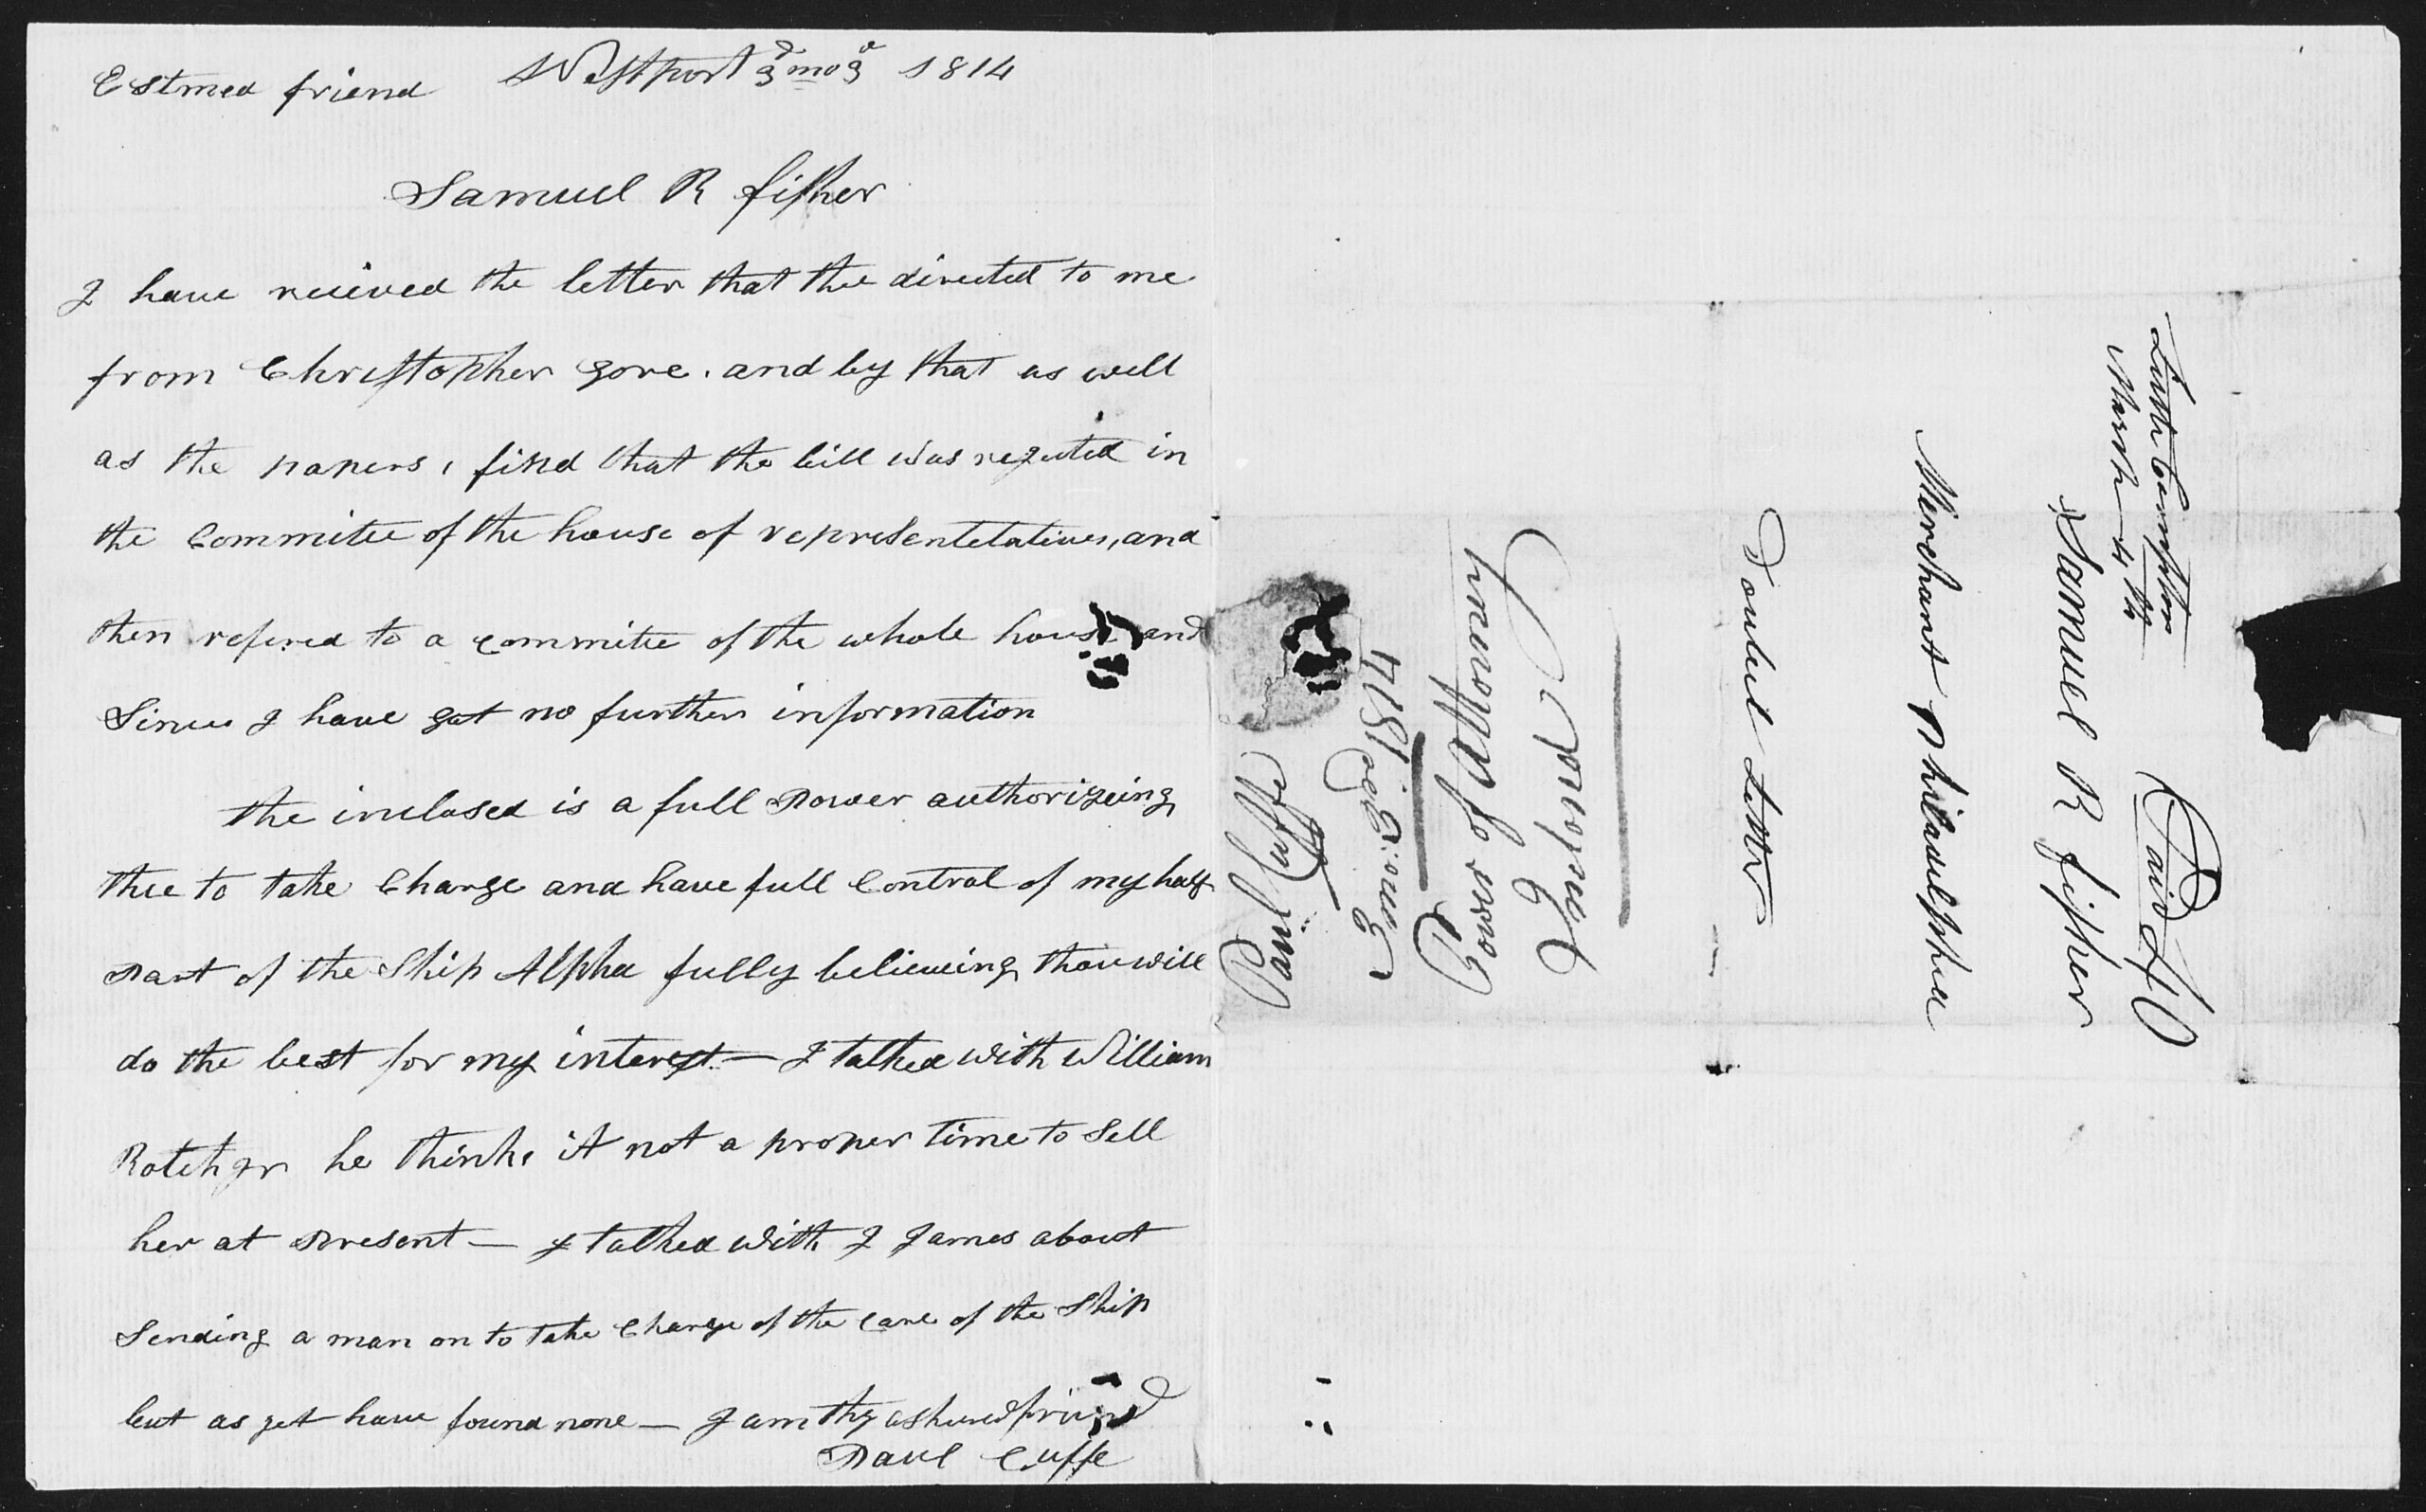 Estmed friend Westport 3d mo 3d 1814
Samuel R fisher
I have reieved the letter that the directed to me
from Christopher gore. and by that as well
as the papers, find that the bill was rejected in
the Committee of the house of representetatives, and
then refered to a committee of the whole house and
Since I have got no further information
the inclosed is a full Power authorizeing
thee to take Charge and have full Control of my half
Part of the Ship Alpha fully believeing thou will
do the best for my interest — I talked with William
Rotch Jr he thinks it not a proper time to Sell
her at Present — I talked with J James about
Sending a man on to take Charge of the care of the Ship
but as yet have found none — I am thy ashured friend
Paul Cuffe
Paul Cuffe
3 mo: 3d 1814
Power of Attorney
Inclosed
Double Letter
Merchant Philadelphia
Samuel R fisher
Little Compton
March 4th
Paid 40